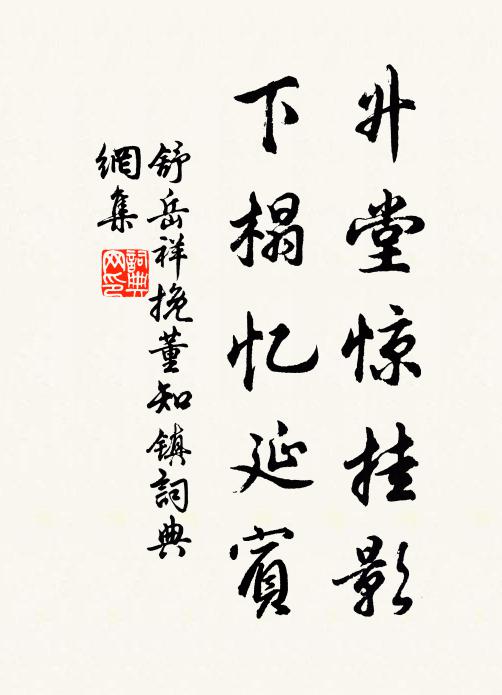 升堂惊挂影
下榻忆延賓
舒岳祥挽董知镇詞典
網集
詞典网印